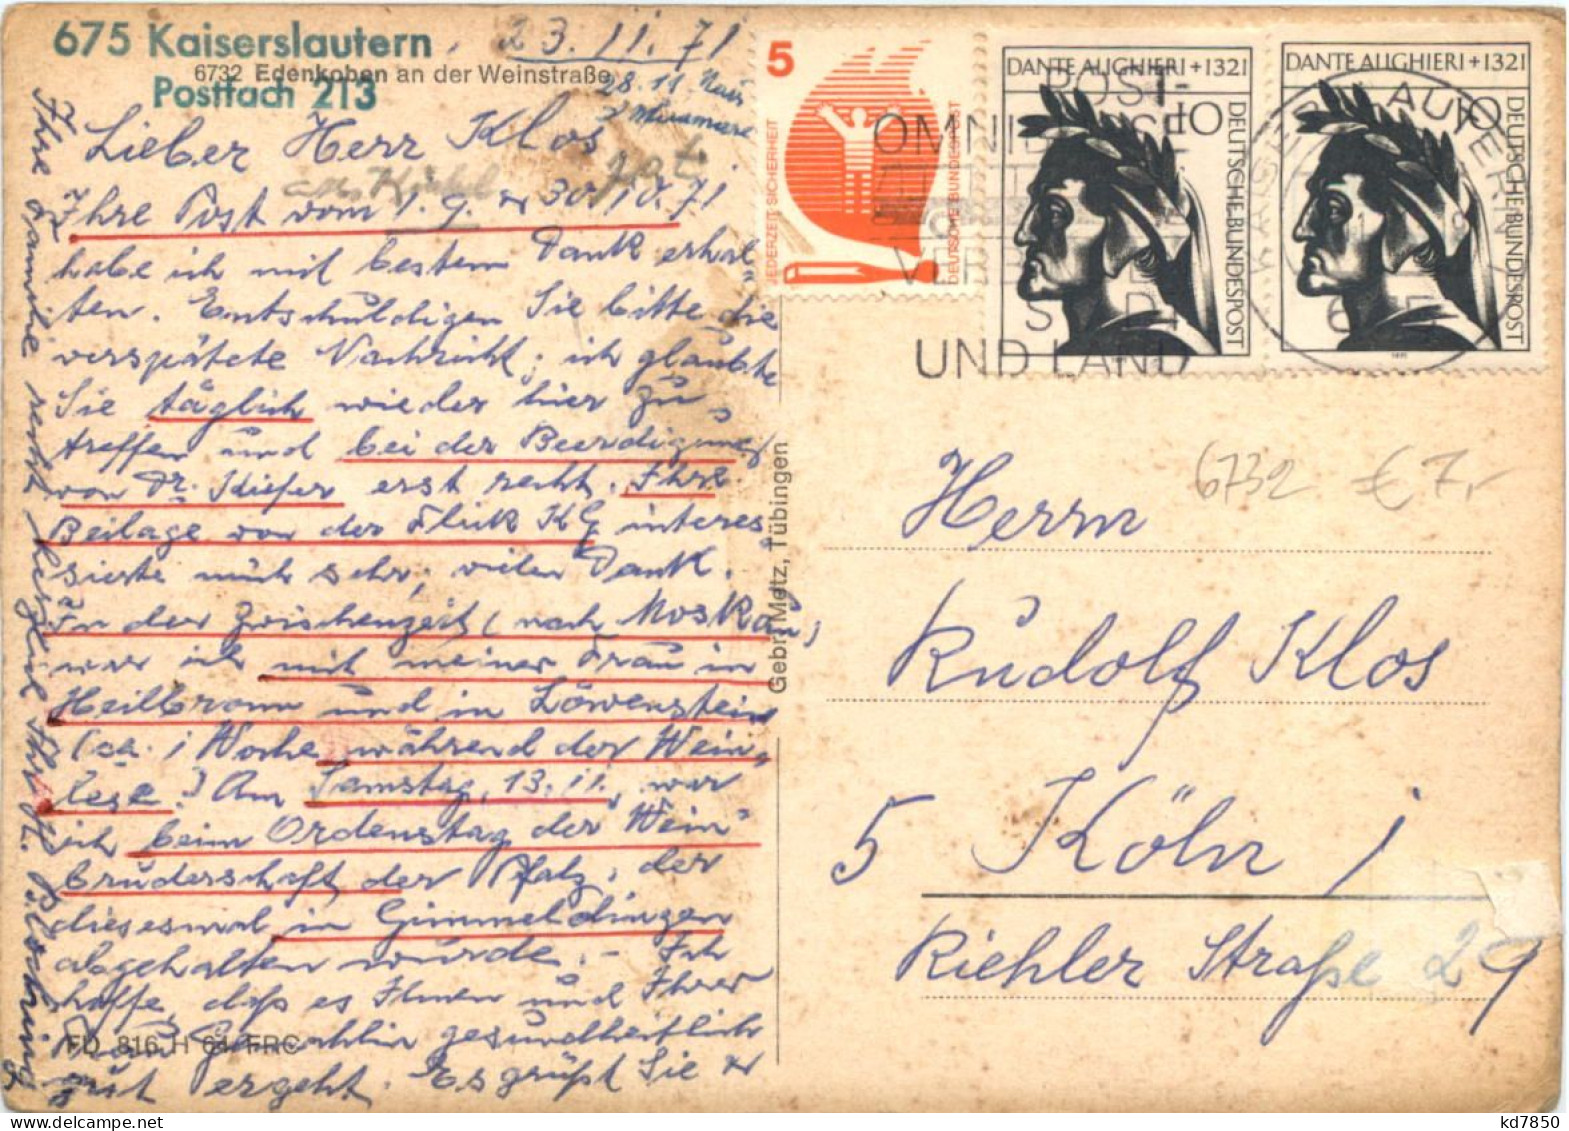 675 Kaiserslautern
Postfach 213
6732 Edenkoben an der Weinstraße
23.11.71
28.11.
Lieber Herr Klos
Ihre Post vom 1.9. & 30.10.71
habe ich mit bestem Dank erhal-
ten. Entschuldigen Sie bitte die
verspätete Nachricht; ich glaubte
Sie täglich wieder hier zu
treffen und bei der Beerdigung
von Dr. Kiefer erst recht. Ihre
Beilage von der Flick KG interes-
sierte mich sehr; vielen Dank.
In der Zwischenzeit (nach Moskau)
war ich mit meiner Frau in
Heilbronn und in Löwenstein
(ca. 1 Woche während der Wein-
lese.) Am Samstag, 13.11., war
ich beim Ordenstag der Wein-
bruderschaft der Pfalz, der
diesesmal in Gimmeldingen
abgehalten wurde. - Ich
hoffe, daß es Ihnen und Ihrer
Frau Gemahlin gesundheitlich
gut ergeht. Es grüßt Sie &
Ihre Familie recht herzlich Ihr
FD 816 H 64 FRC
Gebr. Metz, Tübingen
5
JEDERZEIT SICHERHEIT
DEUTSCHE BUNDESPOST
DANTE ALIGHIERI + 1321
10
DEUTSCHE BUNDESPOST
DANTE ALIGHIERI + 1321
DEUTSCHE BUNDESPOST
POST-
UND LAND
6732 € 7,-
Herrn
Rudolf Klos
5 Köln 1
Riehler Straße 29
kd7850